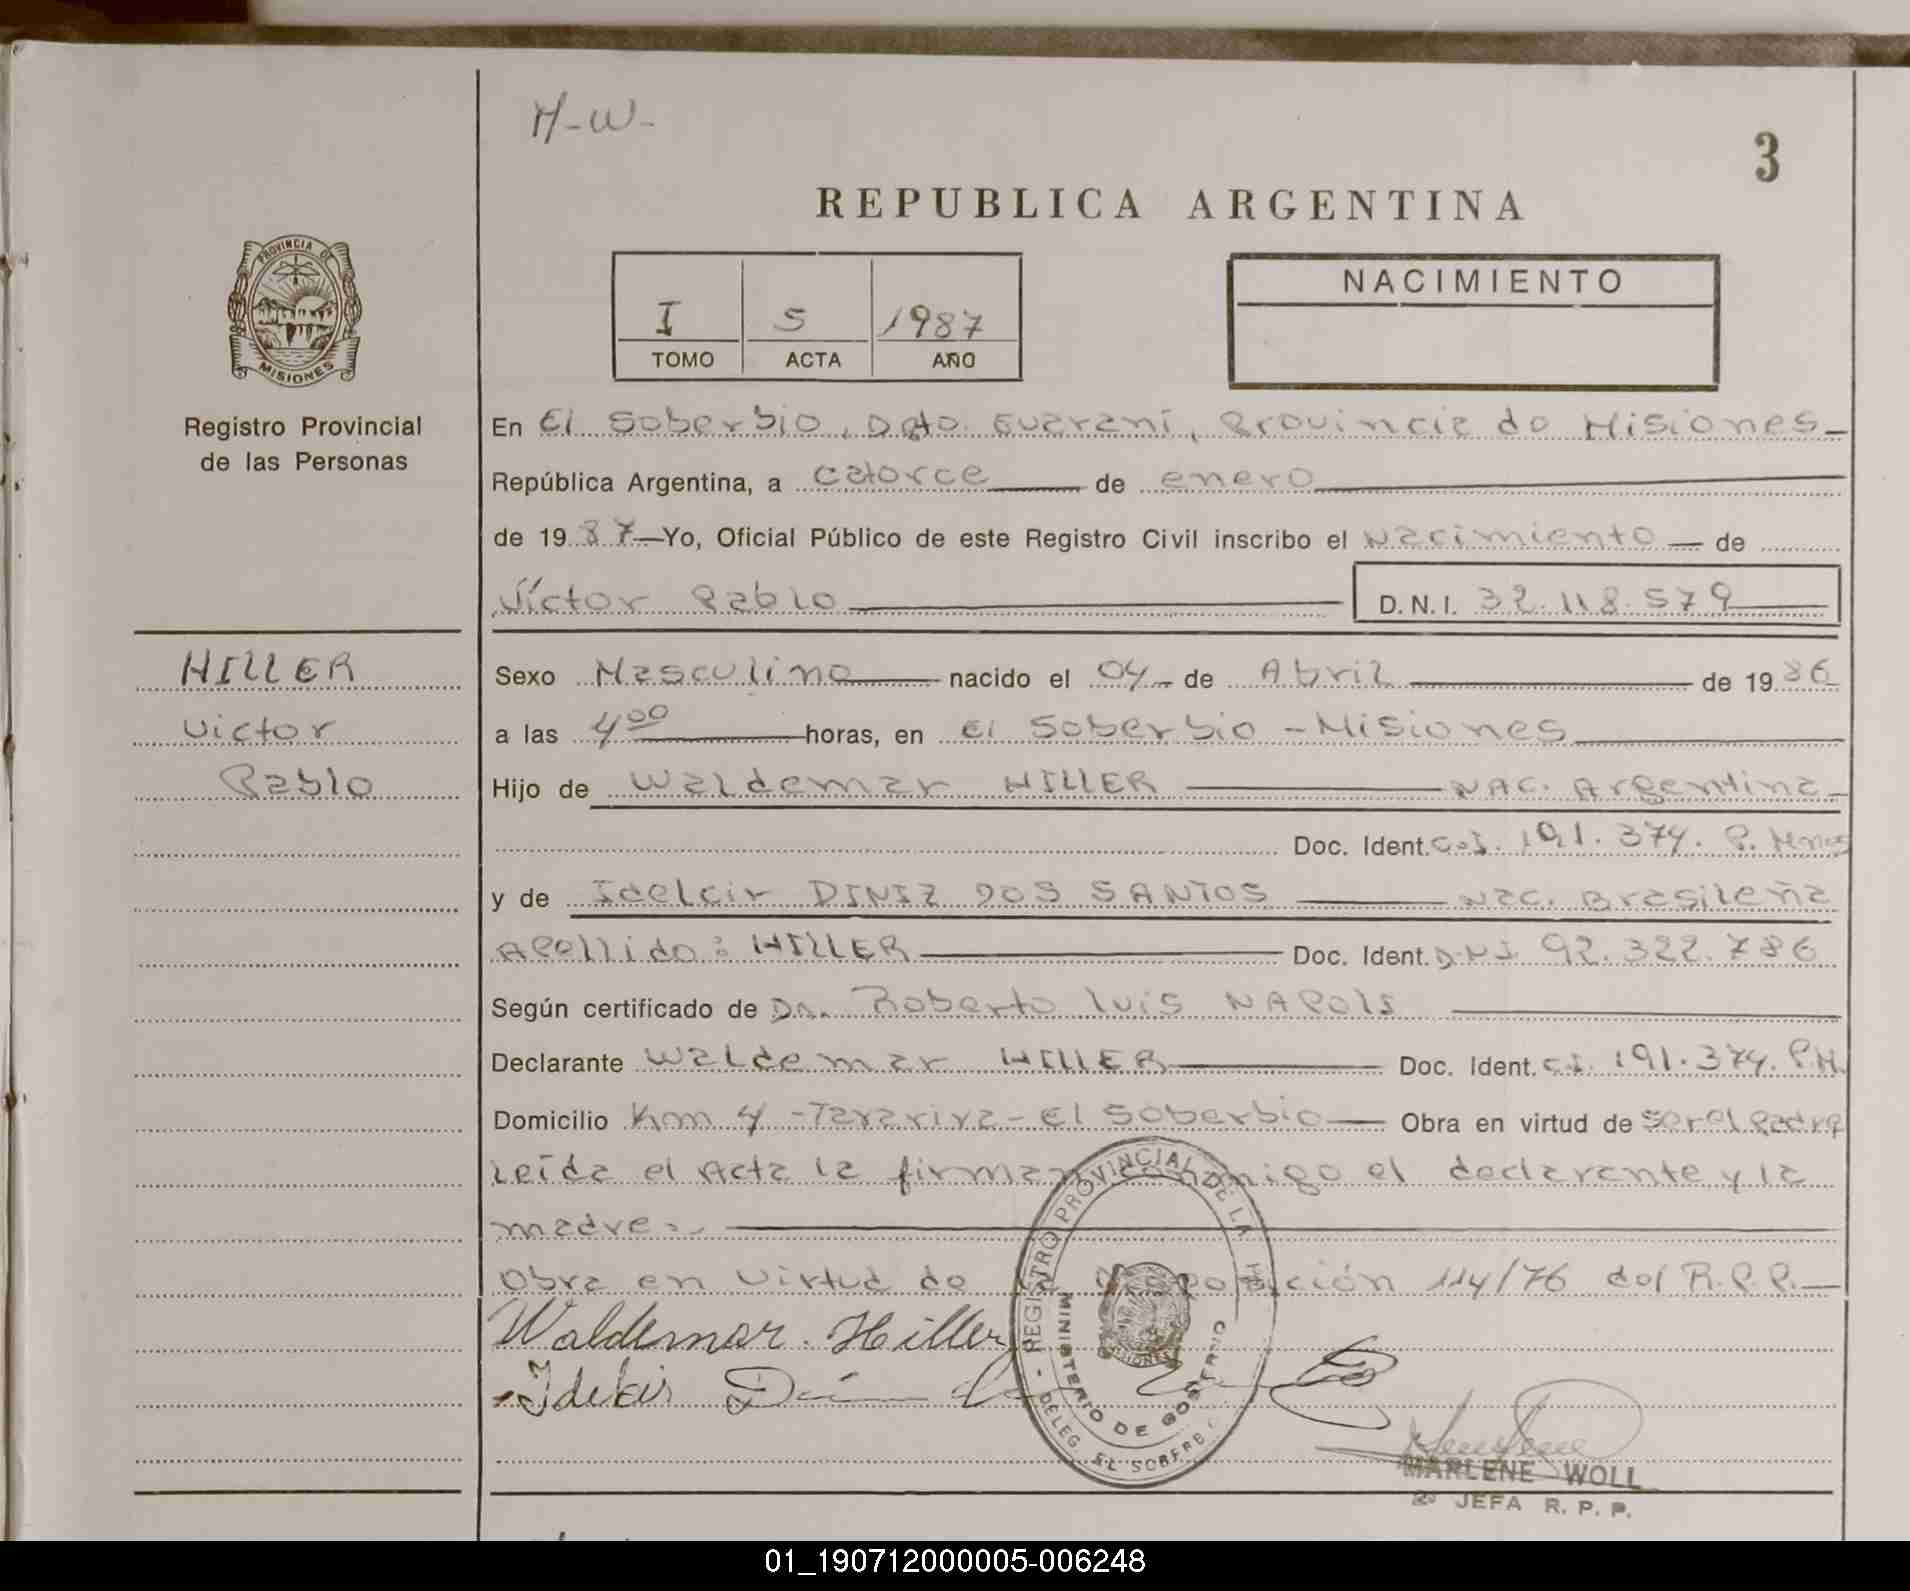 H-W-
3
REPUBLICA ARGENTINA
PROVINCIA DE
MISIONES
Registro Provincial
de las Personas
I 5 1987
TOMO ACTA AÑO
NACIMIENTO
En El Soberbio, Dpto. Guaraní, Provincia de Misiones
República Argentina, a catorce de enero
de 1987 Yo, Oficial Público de este Registro Civil inscribo el Nacimiento de
Víctor Pablo D.N.I. 32.118.579
HILLER
Victor
Pablo
Sexo Masculino nacido el 04 de Abril de 1986
a las 4 00 horas, en El Soberbio - Misiones
Hijo de Waldemar HILLER NAC. Argentina
Doc. Ident. C.I. 191.374. P. Mnes
y de Idelcir DINIZ DOS SANTOS Nac. Brasileña
Apellido: HILLER Doc. Ident. D.N.I 92.322.786
Según certificado de Dr. Roberto Luis NAPOLS
Declarante Waldemar HILLER Doc. Ident. C.I. 191.374. P.M.
Domicilio Km 4 - Tararira - El Soberbio Obra en virtud de ser el padre
Leída el Acta la firman conmigo el declarante y la
madre.
Obra en virtud de posición 114/76 del R.P.P.
Waldemar. Hiller
Idelcir
REGISTRO PROVINCIAL DE LA
MINISTERIO DE GOBIERNO
MISIONES
DELEG. EL SOBERB
MARLENE WOLL
JEFA R. P. P.
01_190712000005-006248